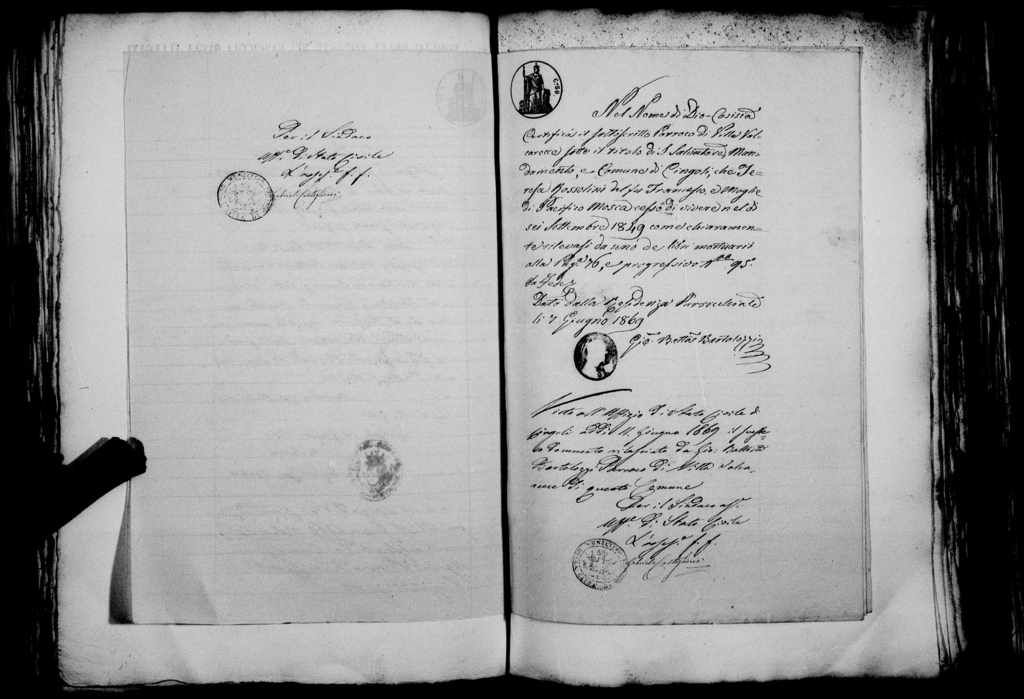 Per il Sindaco
Uff.e di Stato Civile
L'Assess.e f.f.
C.50
Nel Nome di Dio Così sia
Certifico il sottoscritto Parroco di Villa Val
carece sotto il titolo di S. Salvatore, Man
damento, e Comune di Cingoli, che Te-
resa Rossolini del fu Francesco, e Moglie
di Pacifico Mosca cessò di vivere nel dì
sei Settembre 1849 come chiaramen-
te rilevasi da uno de libri mortuarii
alla Pag.e 76, e progressivo N.ro 95.
In Fede
Dato dalla Residenza Parrocchiale
li 7 Giugno 1869
Gio. Batta Bertolozzi
Visto all'Uffizio di Stato Civile di
Cingoli addì 11. Giugno 1869 il
documento rilasciato da Gio: Batta
Bertolozzi Parroco di Villa
di questo Comune
Per il Sindaco
Uff.e di Stato Civile
L'Assess.e f.f.